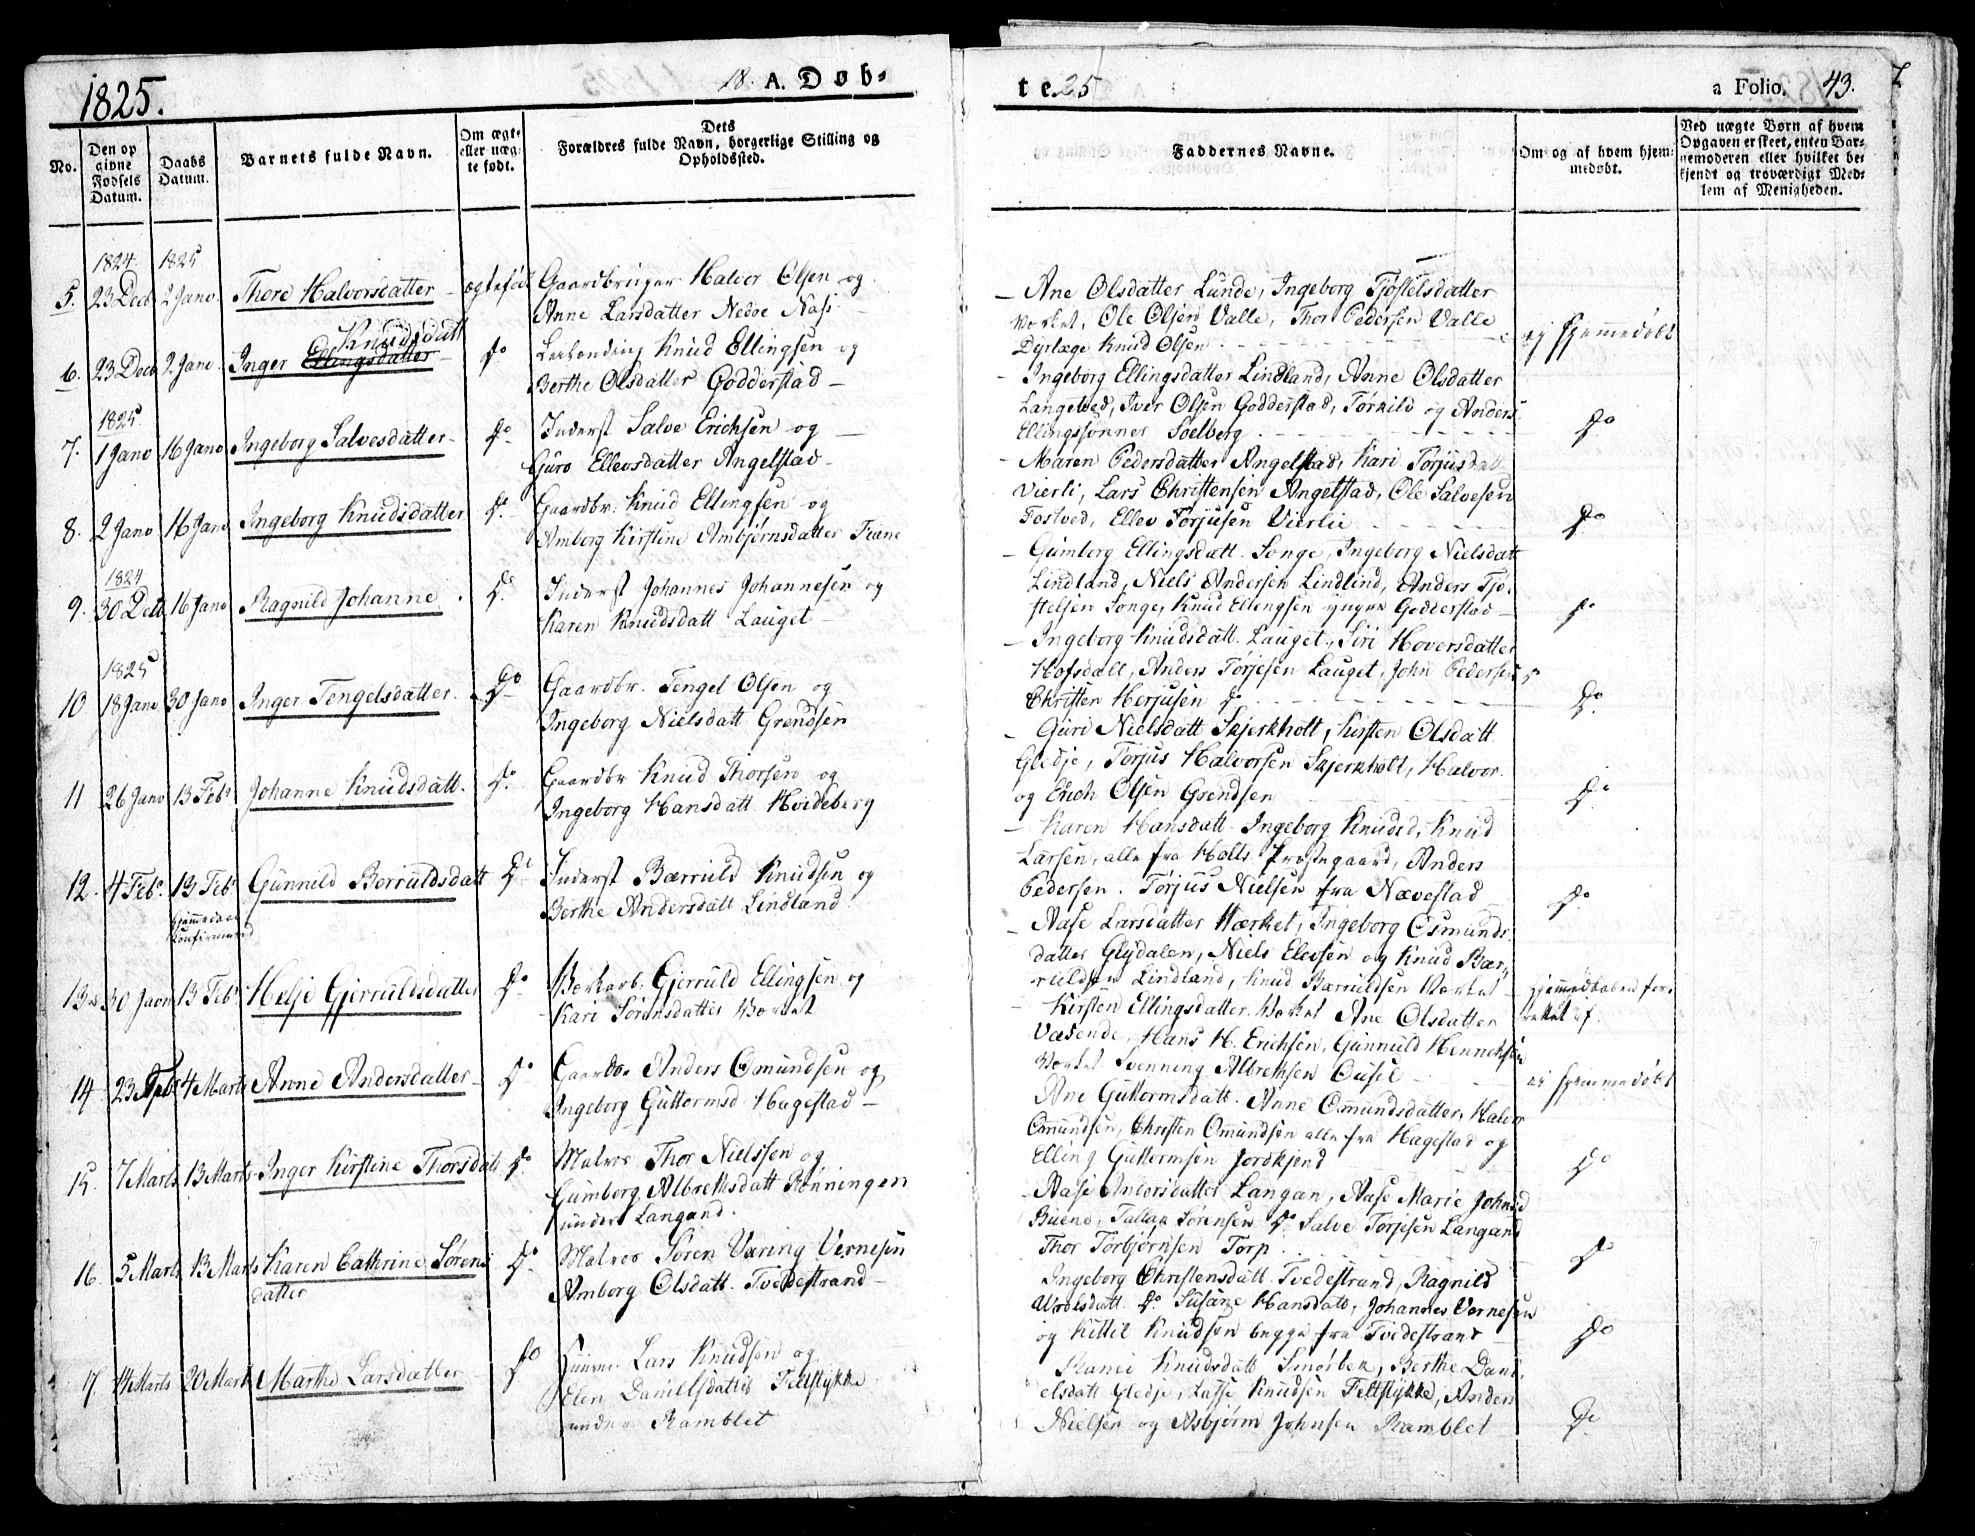 1825.
18. A. Døb-
No.
Den opgivne Fødsels Datum.
Daabs Datum.
Barnets fulde Navn.
Om ægte eller uægte født.
Dets Forældres fulde Navn, borgerlige Stilling og Opholdssted.
1824 1825
5. 23 Decb 2 Jano Thore Halvorsdatter ægtefød Gaardbruger Halvor Olsen og
Anne Larsdatter Nedre Næs
Knudsdatt
6. 23 Decb 2 Jano Inger Ellingsdatter do Knud Ellingsen og
Berthe Olsdatter Godderstad
1825
7. 1 Jano 16 Jano Ingeborg Salvesdatter do Inderst Salve Erichsen og
Guro Ellevsdatter Angelstad
8. 2 Jano 16 Jano Ingeborg Knudsdatter do Gaardbr. Knud Ellingsen og
Amborg Kirstine Ambjørnsdatter Fiane
1824
9. 30 Dec 16 Jano Ragnild Johanne do Inderst Johannes Johannesen og
Karen Knudsdatt Lauget
1825
10 18 Jano 30 Jano Inger Tengelsdatter do Gaardbr. Tengel Olsen og
Ingeborg Nielsdatt Grendsen
11 26 Jano 13 Febr Johanne Knudsdatt. do Gaardbr Knud Thorsen og
Ingeborg Hansdatt Hvideberg
12. 4 Febr. 13 Febr Gunnild Berruldsdatt do Inderst Bærruld Knudsen og
Berthe Andersdatt Lindland
hjemmedaab confirmered
13 30 Jano 13 Febr Helje Gjerruldsdatter do Værkarb. Gjerruld Ellingsen og
Kari Sørensdatter Værket
14. 23 Feb 4 Marts Anne Andersdatter do Gaardbr Anders Omundsen og
Ingeborg Guttormsd. Hagestad
15. 7 Marts 13 Marts Inger Kirstine Thorsdatt do Matros Thor Nielssen og
Gumborg Albrethsdatt Rønningen
under Langand.
16. 5 Marts 13 Marts Karen Cathrine Sørens do Matros Søren Varing Vernesen
datter Amborg Olsdatt. Tvedestrand
17 14 Marts 20 Mart Marthe Larsdatter do Lars Knudsen og
Elen Danielsdatter Feltstykke
under Ramblet
te 25
a Folio. 43.
Faddernes Navne.
Om og af hvem hjemmedøbt.
Ved uægte Børn af hvem Opgaven er skeet, enten Barnemoderen eller hvilket bekjendt og troværdigt Medlem af Menigheden.
Ane Olsdatter Lunde, Ingeborg Tjøstelsdatter
Værket, Ole Olsen Valle, Thor Pedersen Valle
Dyrlæge Knud Olsen ej hjemmedøbt
Ingeborg Ellingsdatter Lindland, Anne Olsdatter
Langeved, Iver Olsen Godderstad, Torkild og Anders
Ellingssønner Soelberg do
Maren Pedersdatter Angelstad, Kari Torjusdatt
Vierli, Lars Christensen Angelstad, Ole Salvesen
Tostved, Ellev Torjusen Vierlie do
Gumborg Ellingsdatt. Songe, Ingeborg Nielsdatt
Lindland, Niels Andersen Lindland, Anders Tjøstelsen Songe, Knud Ellingsen yngre Godderstad do
Ingeborg Knudsdatt. Lauget, Siri Hoversdatter
Hofsdall, Anders Torjesen Lauget, John Pedersen
Christen Herjusen do do
Guri Nielsdatt Skjerkholt, Kirsten Olsdatt
Gledje, Torjus Halvorsen Skjerkholt, Halvor
og Erich Olsen Grendsen do
Karen Hansdatt. Ingeborg Knudsd, Knud
Larsen, alle fra Holts Præstegaard, Anders
Pedersen. Torjus Nielsen fra Nævestad do
Aase Larsdatter Værket, Ingeborg Osmunds
datter Glydalen, Niels Elevsen og Knud Bær
ruldsen Lindland, Knud Bærruldsen Værket hjemmedaaben for
rettet af
Kirsten Ellingsdatter Værket Ane Olsdatter
Væsende, Hans H. Erichsen, Gunnuld Henrichsen
Værket Svenning Albrethsen Ousel ej hjemmedøbt
Ane Guttormsdatt. Anne Omundsdatter, Halvor
Omundsen, Christen Omundsen alle fra Hagestad og
Elling Guttormsen Jordkjend do
Aase Andersdatter Langan, Aase Marie Johnsd
Buene, Tallax Sørensen do Salve Torjesen Langand
Thor Torbjørnsen Torp do
Ingeborg Christensdatt. Tvedestrand, Ragnild
do Susane Hansdatt, Johannes Vernesen
og Kittil Knudsen begge fra Tvedestrand do
Knudsdatt Smørbek, Berthe Dani
elsdatt Gledje, Lasse Knudsen Feltstykke, Anders
Nielsen og Asbjørn Johnsen Ramblet do